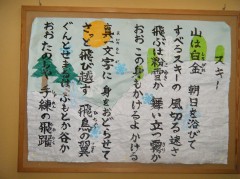 スキー
山は白金 朝日を浴びて
すべるスキーの 風切る速さ
飛ぶは粉雪か 舞い立つ霧か
おお この身もかけるよ かける
真一文字に 身をおどらせて
さっと飛び越す 飛鳥の翼
ぐんとせまるは ふもとか谷か
おお たのしや 手練の飛躍